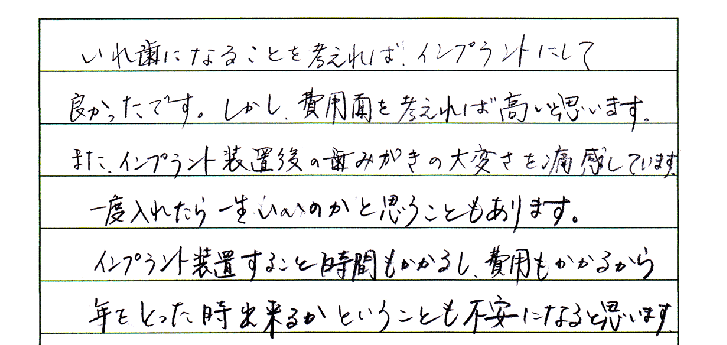 いれ歯になることを考えれば、インプラントにして
良かったです。しかし、費用面を考えれば高いと思います。
また、インプラント装置後の歯みがきの大変さを痛感しています。
一度入れたら一生いいのかと思うこともあります。
インプラント装置すること時間もかかるし、費用もかかるから
年をとった時出来るかということも不安になると思います